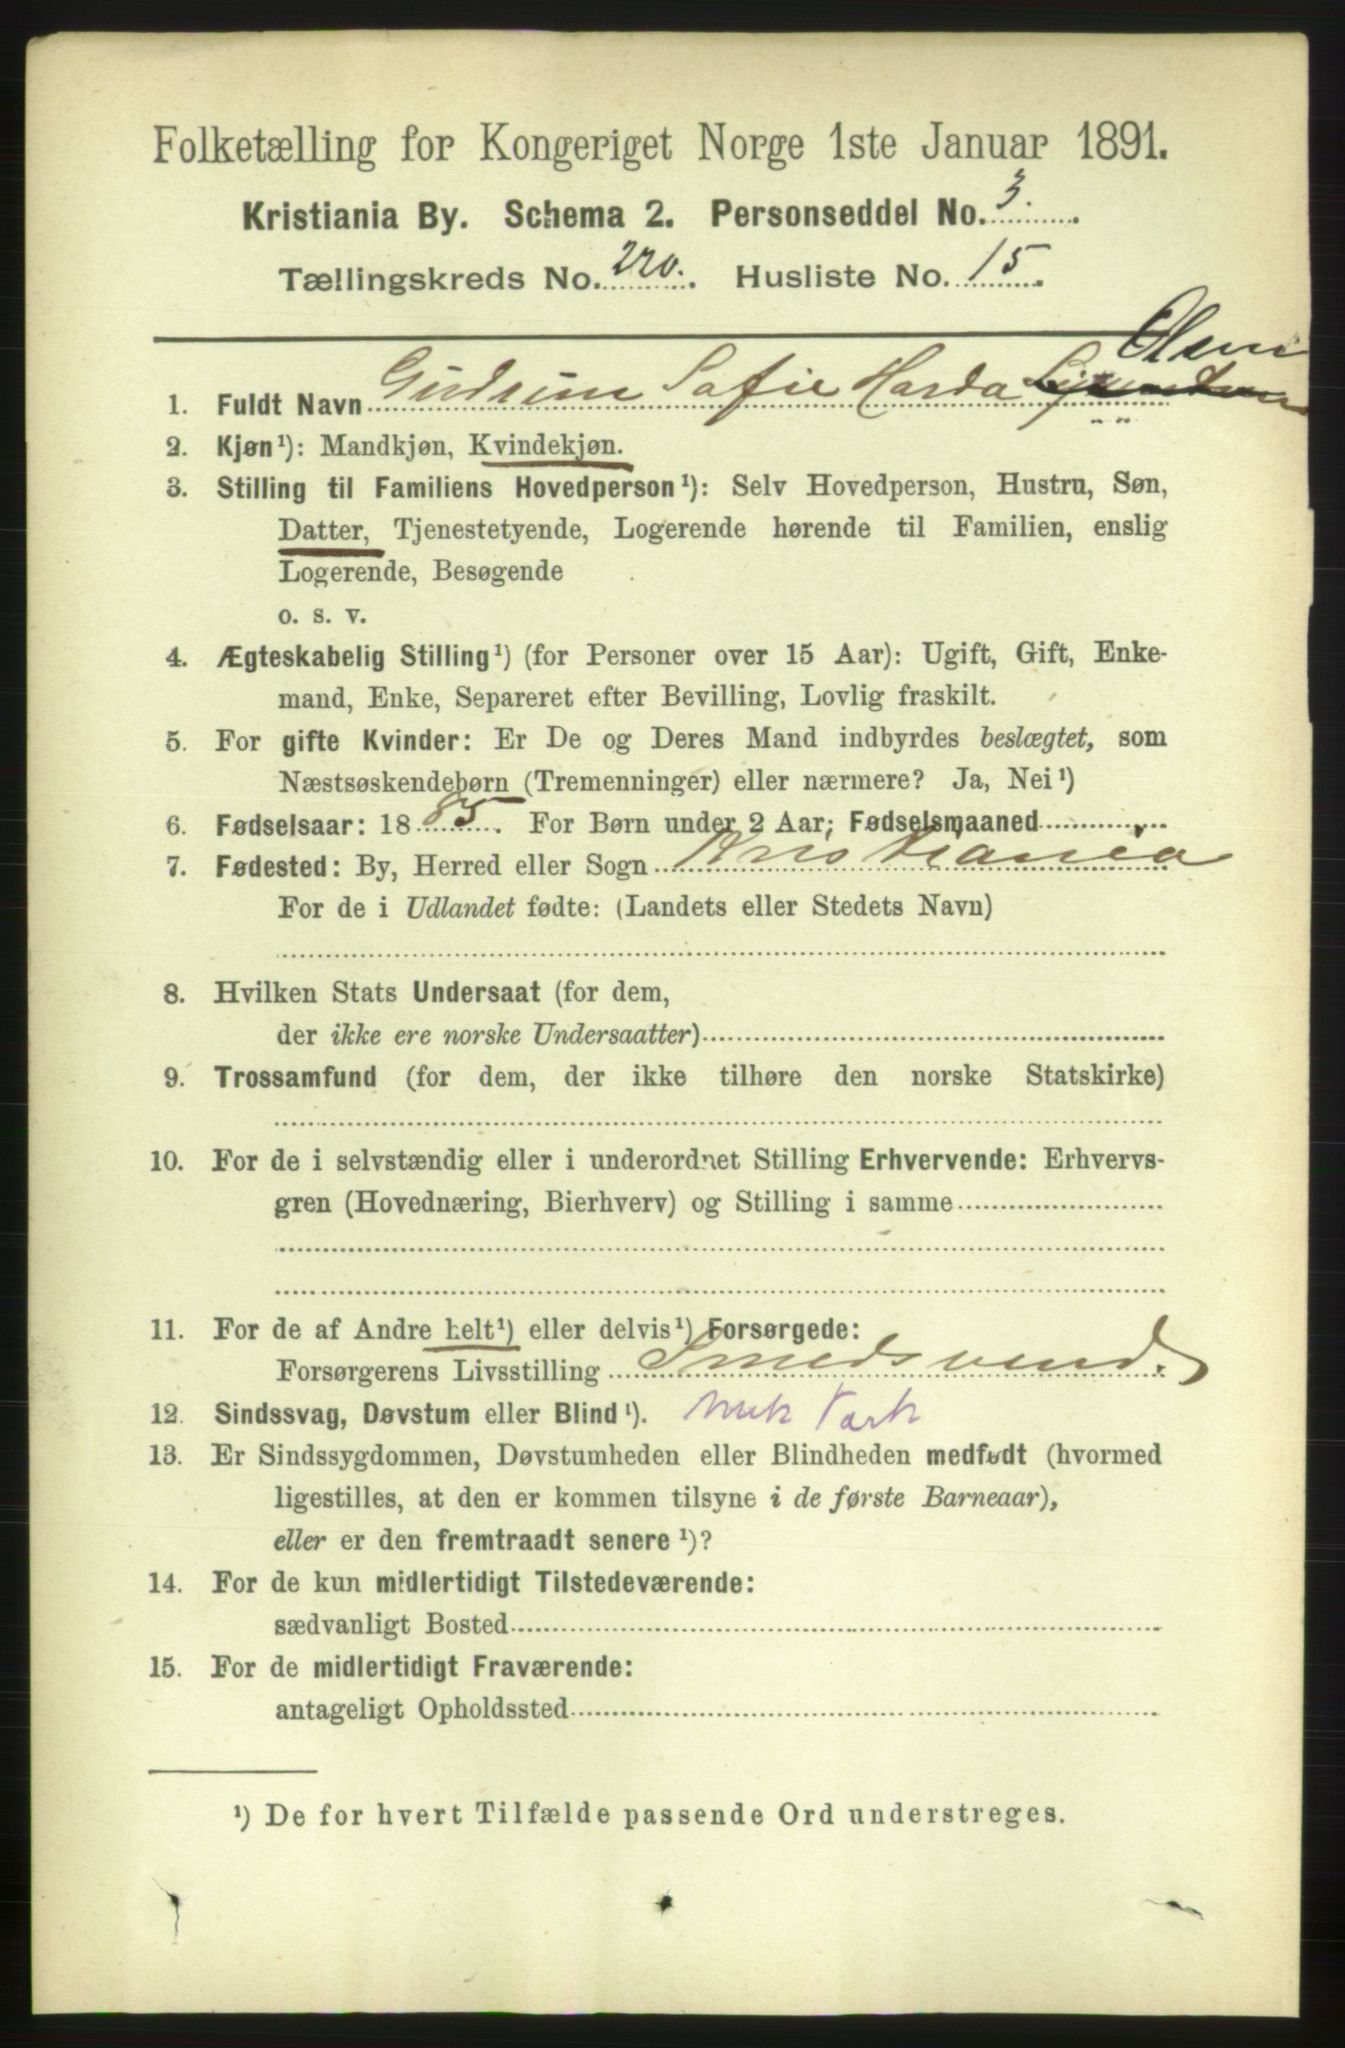 Folketælling for Kongeriget Norge 1ste Januar 1891.
Kristiania By. Schema 2. Personseddel No. 3.
Tællingskreds No. 220. Husliste No. 15.
Olsen
1. Fuldt Navn Gudrun Sofie Harda
2. Kjøn¹): Mandkjøn, Kvindekjøn.
3. Stilling til Familiens Hovedperson¹): Selv Hovedperson, Hustru, Søn,
Datter, Tjenestetyende, Logerende hørende til Familien, enslig
Logerende, Besøgende
o. s. v.
4. Ægteskabelig Stilling¹) (for Personer over 15 Aar): Ugift, Gift, Enke-
mand, Enke, Separeret efter Bevilling, Lovlig fraskilt.
5. For gifte Kvinder: Er De og Deres Mand indbyrdes beslægtet, som
Næstsøskendebørn (Tremenninger) eller nærmere? Ja, Nei¹)
6. Fødselsaar: 1885. For Børn under 2 Aar: Fødselsmaaned
7. Fødested: By, Herred eller Sogn Kristiania
For de i Udlandet fødte: (Landets eller Stedets Navn)
8. Hvilken Stats Undersaat (for dem,
der ikke ere norske Undersaatter)
9. Trossamfund (for dem, der ikke tilhøre den norske Statskirke)
10. For de i selvstændig eller i underordnet Stilling Erhvervende: Erhvervs-
gren (Hovednæring, Bierhverv) og Stilling i samme
11. For de af Andre helt¹) eller delvis¹) Forsørgede:
Forsørgerens Livsstilling Smedsvend.
12. Sindssvag, Døvstum eller Blind¹).
13. Er Sindssygdommen, Døvstumheden eller Blindheden medfødt (hvormed
ligestilles, at den er kommen tilsyne i de første Barneaar),
eller er den fremtraadt senere¹)?
14. For de kun midlertidigt Tilstedeværende:
sædvanligt Bosted
15. For de midlertidigt Fraværende:
antageligt Opholdssted
¹) De for hvert Tilfælde passende Ord understreges.